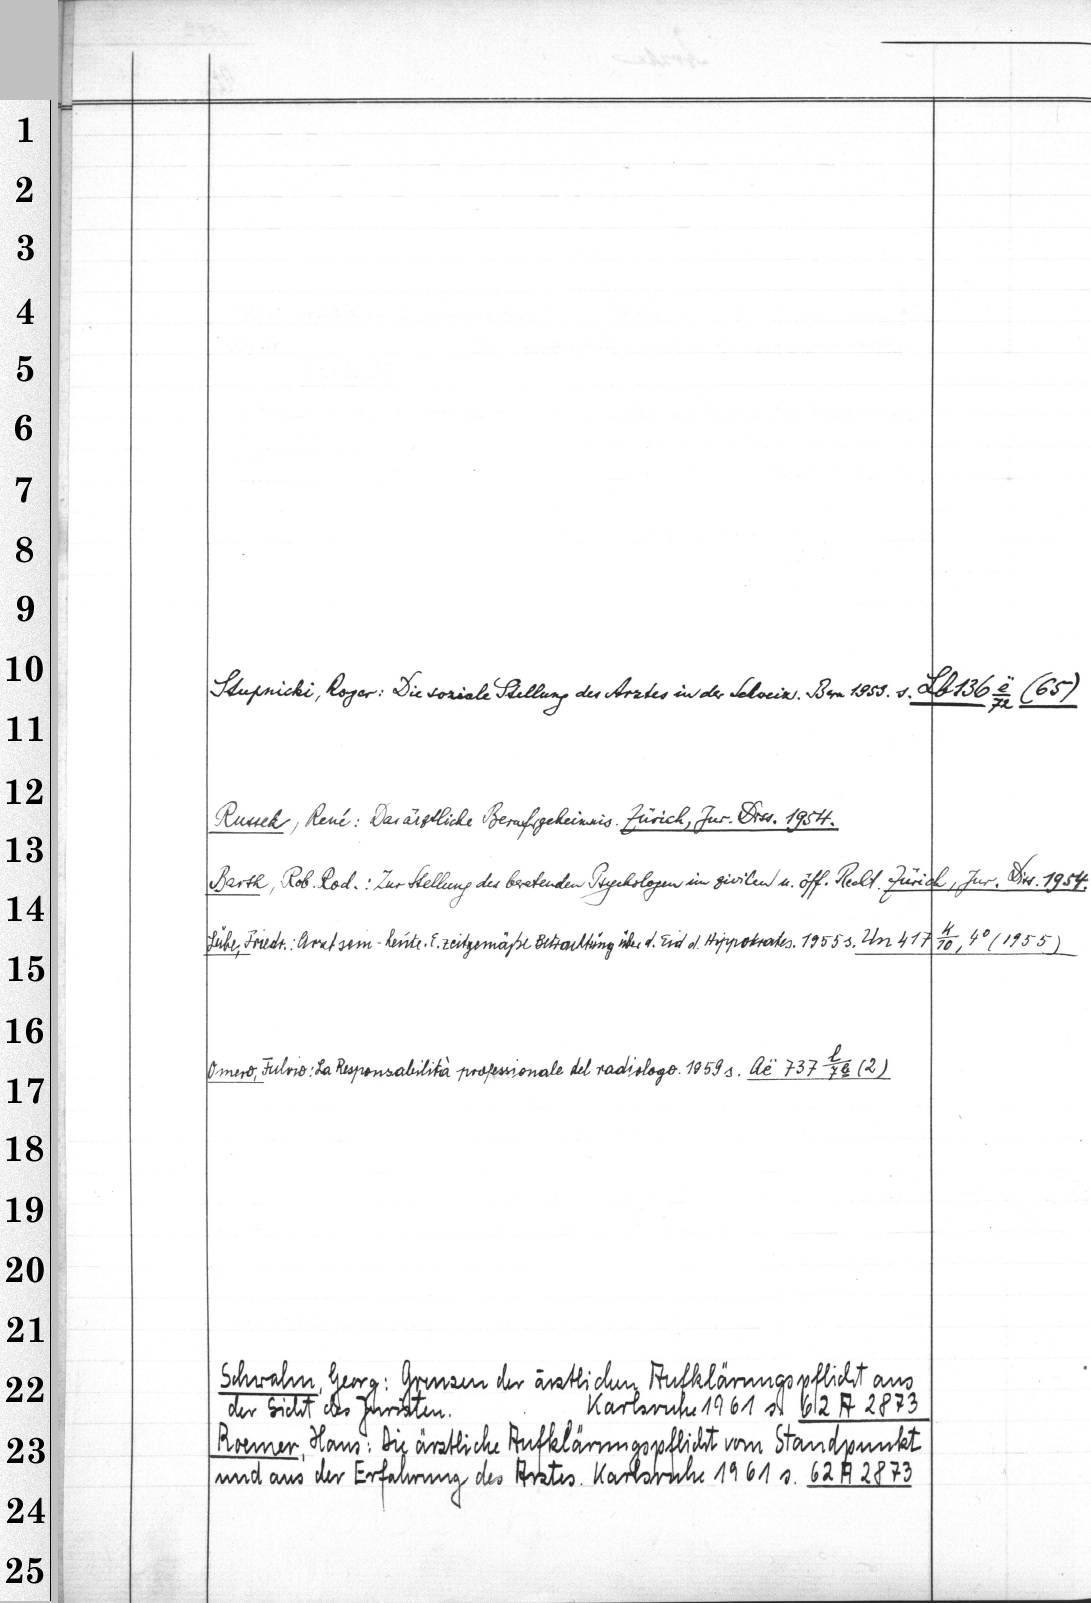 1
2
3
4
5
6
7
8
9
10
Stupnicki, Roger: Die soziale Stellung des Arztes in der Schweiz. Bern 1953. s. Lb 136 ë/72 (65)
11
12
Russek, René: Das ärztliche Berufsgeheimnis. Zürich, Jur. Diss. 1954.
13
Barth, Rob. Rod.: Zur Stellung des beratenden Psychologen im zivilen u. öff. Recht. Zürich, Jur. Diss. 1954.
14
Lübe, Friedr.: Arzt sein - heute. E. zeitgemäße Betrachtung über d. Eid d. Hippokrates. 1955 s. Un 417 /10, 4° (1955)
15
16
Omero, Fulvio: La Responsabilità professionale del radiologo. 1959 s. Aë 737 (2)
17
18
19
20
21
22
Schwalm, Georg: Grenzen der ärztlichen Aufklärungspflicht aus
der Sicht des Juristen. Karlsruhe 1961 s. 62 A 2873
23
Roemer, Hans: Die ärztliche Aufklärungspflicht vom Standpunkt
und aus der Erfahrung des Arztes. Karlsruhe 1961 s. 62 A 2873
24
25